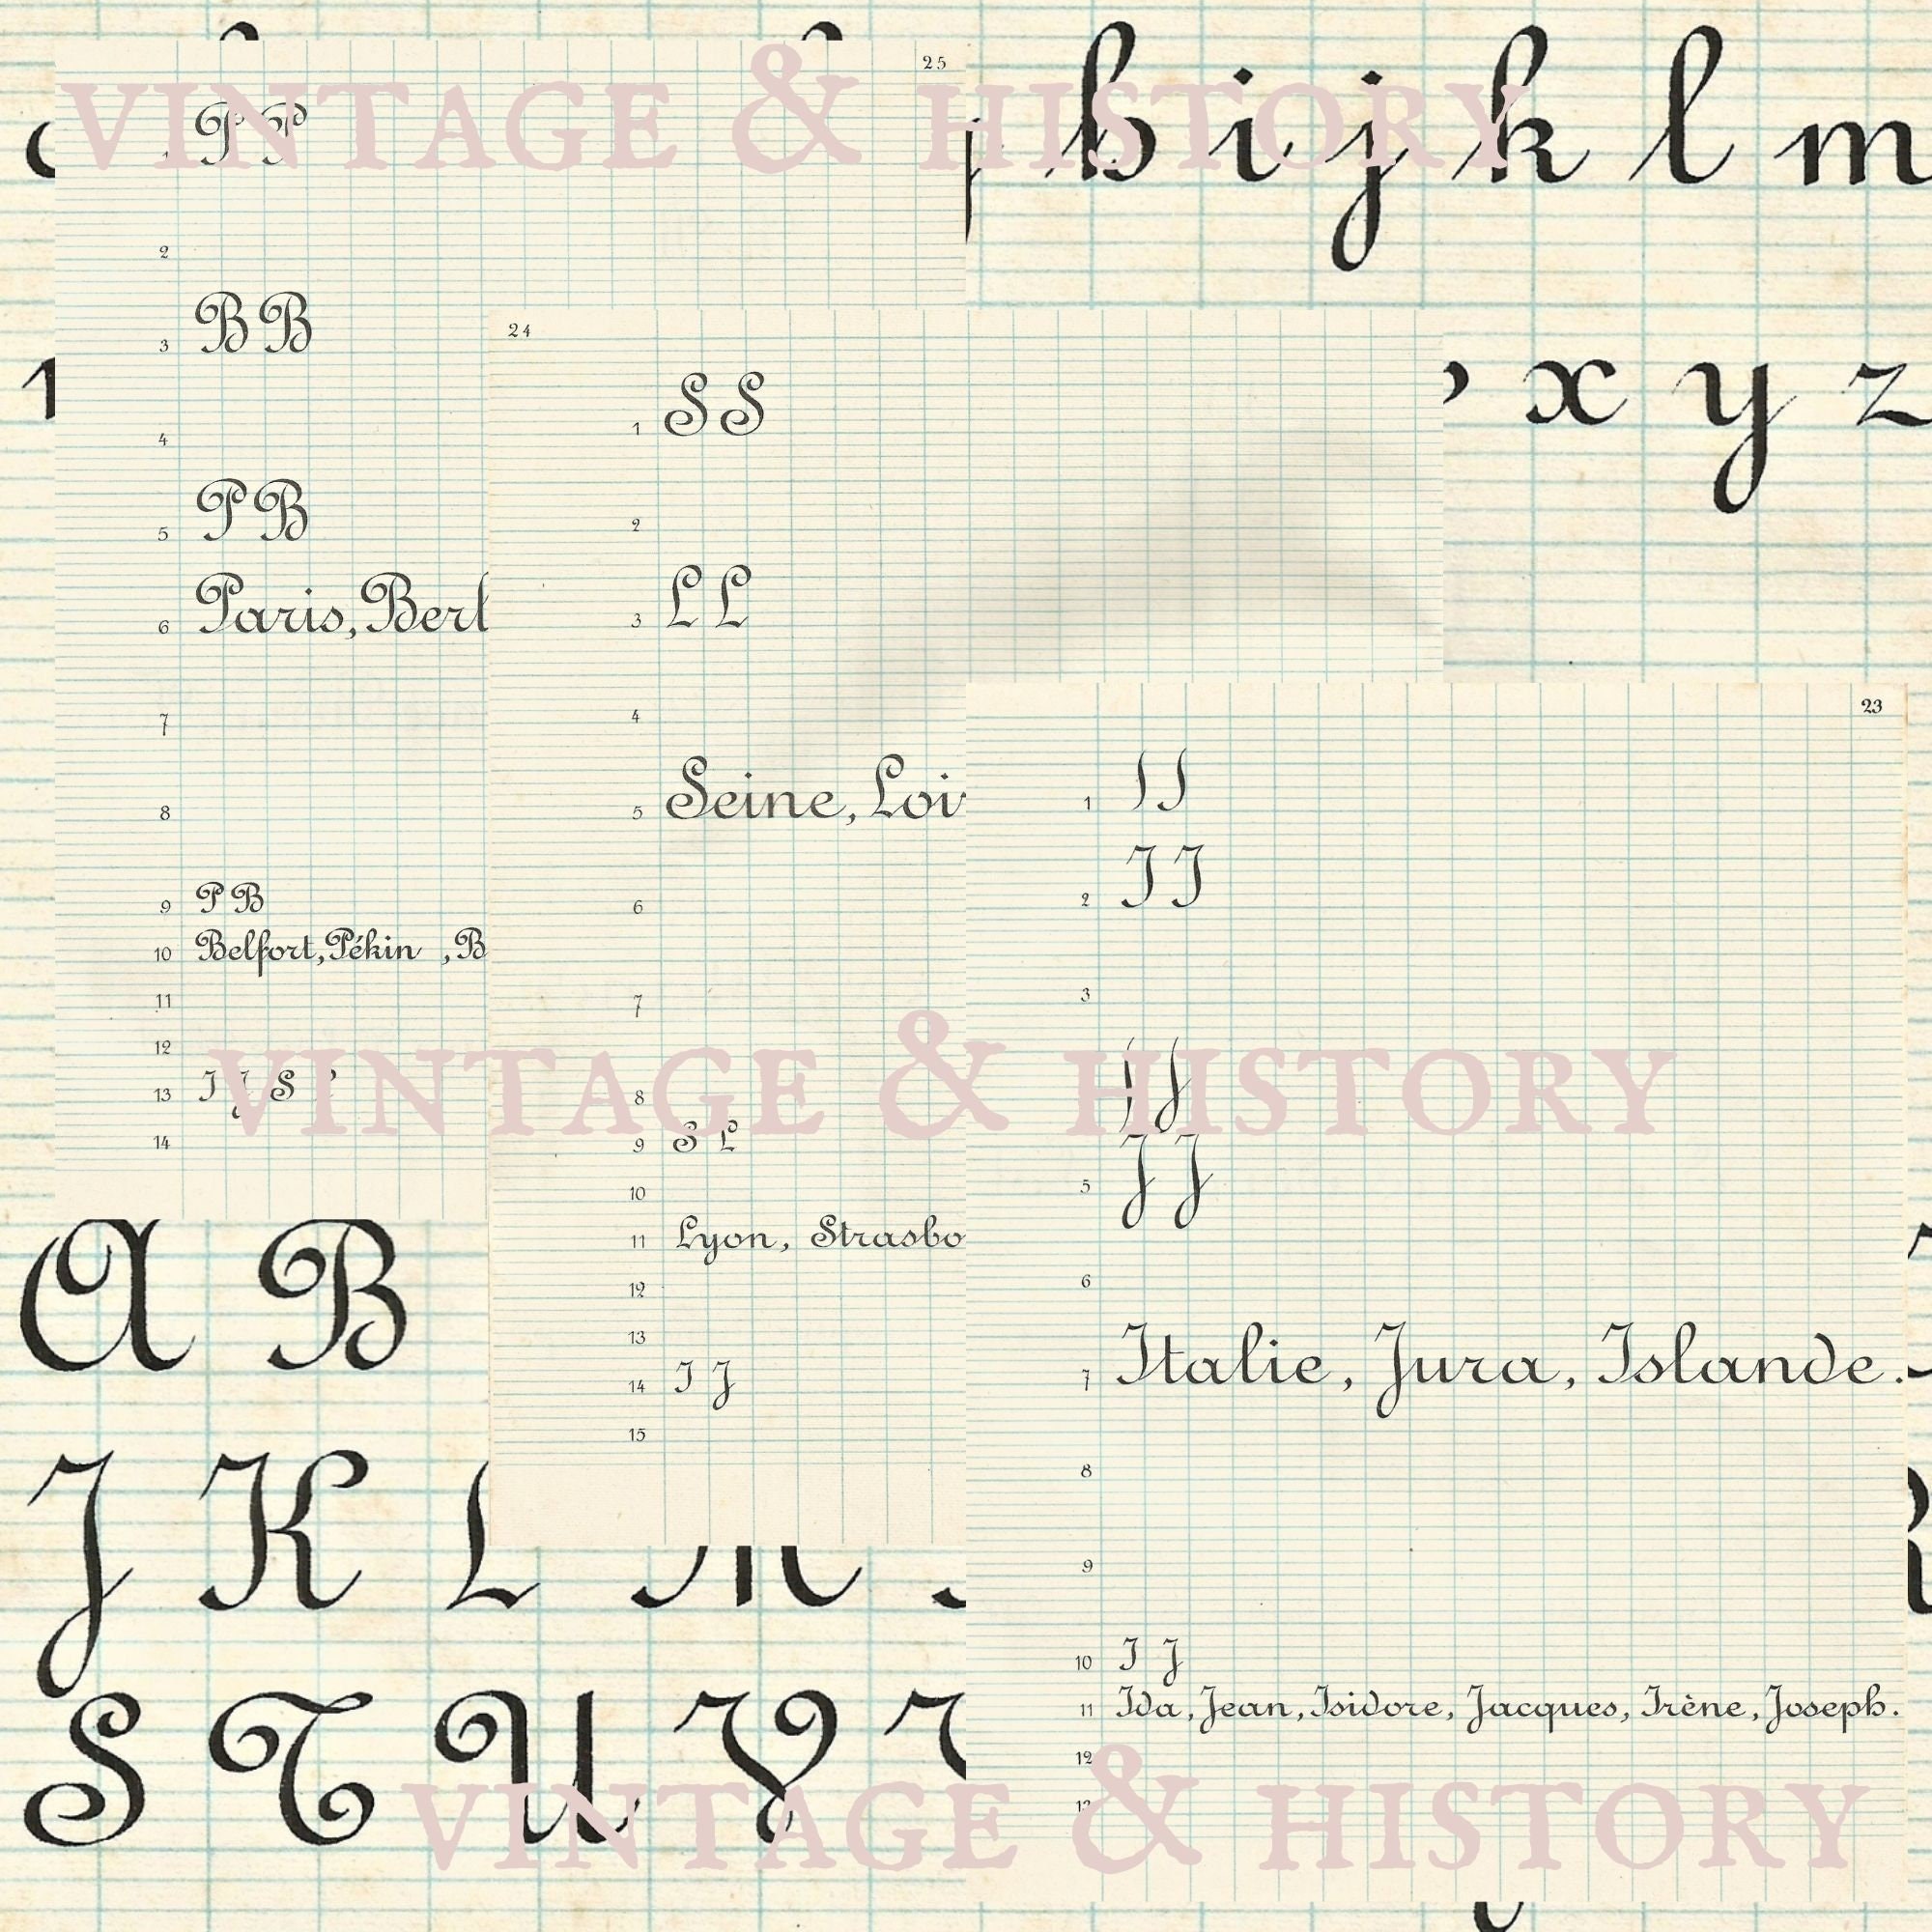 VINTAGE & HISTORY
h i j k l m
x y z
25
P P
2
3 B B
4
5 P B
6 Paris,
7
8
9 P B
10 Belfort, Pékin ,
11
12
13 I J S
14
24
1 S S
2
3 L L
4
5 Seine,
6
7
8
9 S L
10
11 Lyon,
12
13
14 I J
15
23
1
2 I I
3
5 J J
6
7 Italie, Jura, Islande.
8
9
10 I J
11 Ida, Jean, Isidore, Jacques, Irène, Joseph.
12
VINTAGE & HISTORY
A B
J K L
S T U V
VINTAGE & HISTORY